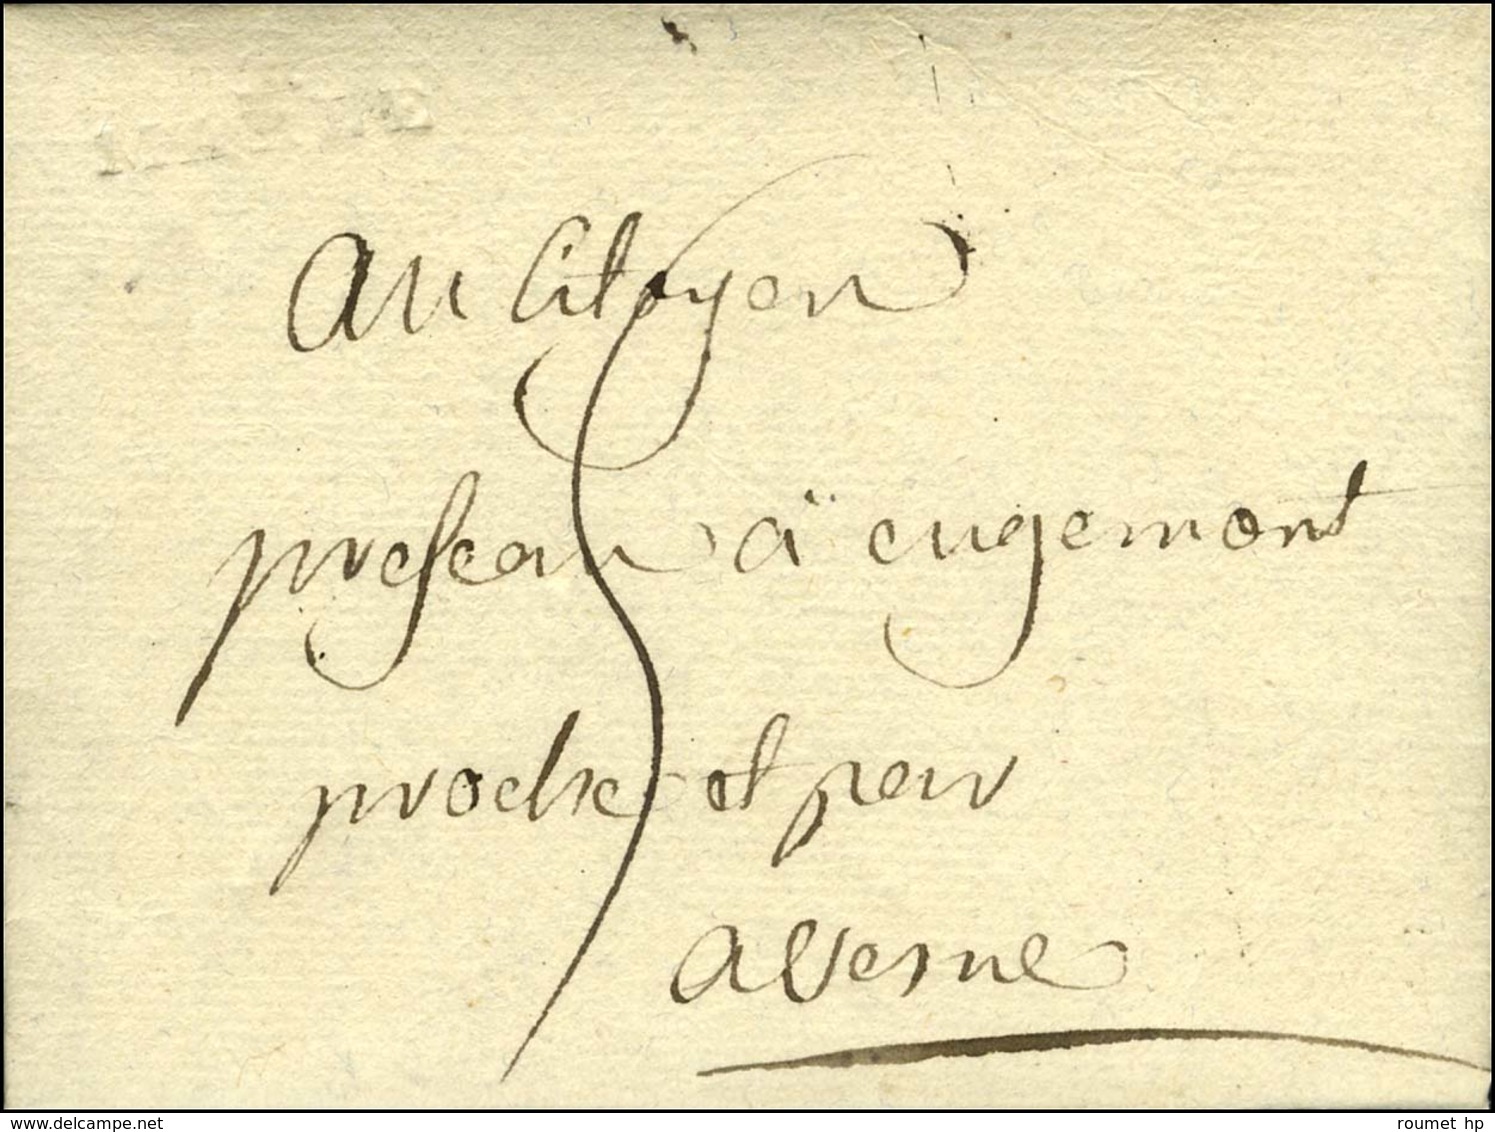 au Citoyen
preseau à eugemont
proche et peur
avesne
www.delcampe.net
roumet hp